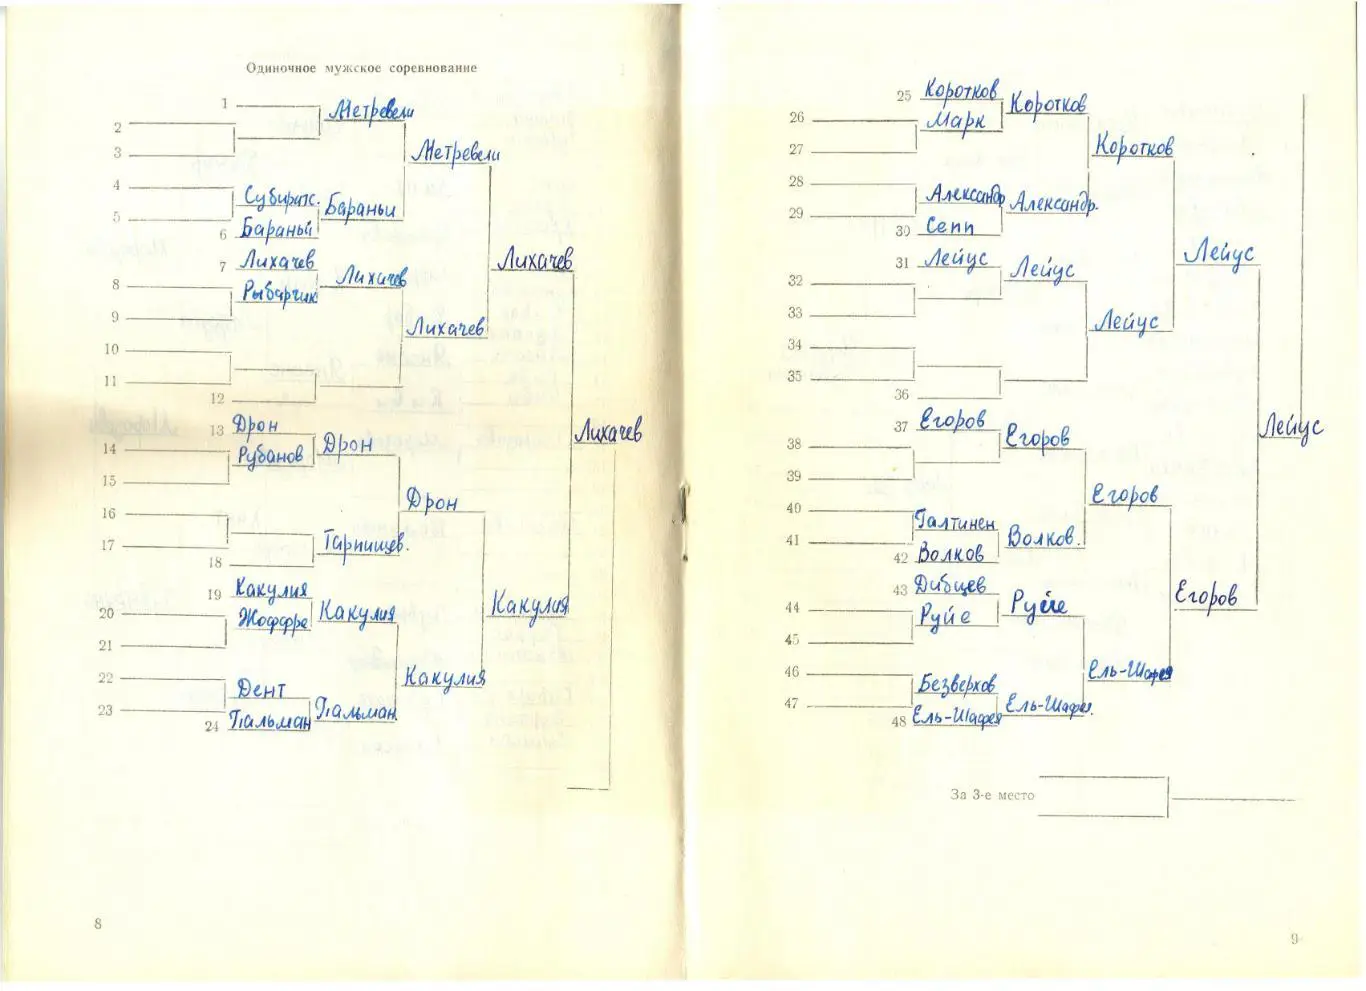 Одиночное мужское соревнование
1
Метревели
2
3
Метревели
4
Субиратс.
5
Бараньи
6 Бараньи
7 Лихачев
Лихачев
8
Рыбарчик
Лихачев
9
Лихачев
10
11
12
13 Дрон
Лихачев
14
Рубанов
Дрон
15
Дрон
16
17
Тарпищев.
18
19 Какулия
Какулия
20
Жоффре
Какулия
21
Какулия
22
Дент
23
24 Пальман
Пальман
8
25 Коротков
Коротков
26
Марк
27
Коротков
28
Александр
29
Александр.
30 Сепп
Лейус
31 Лейус
Лейус
32
33
Лейус
34
35
36
37 Егоров
Лейус
38
Егоров
39
Егоров
40
Галтинен
41
Волков.
42 Волков
43 Дибцев
Егоров
44
Руйе
Руйе
45
46
Ель-Шафея
47
Безверхов
48 Ель-Шафея
Ель-Шафея.
За 3-е место
9